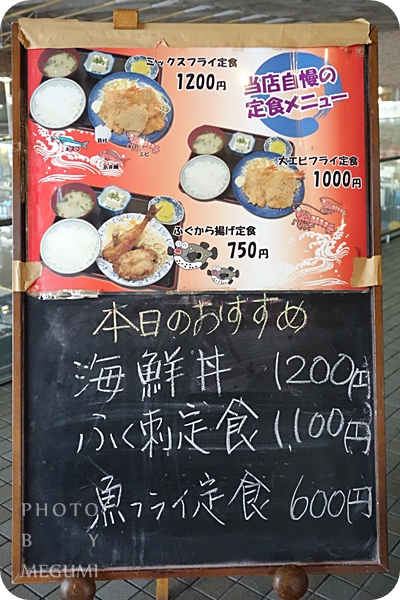 ミックスフライ定食
1200円
当店自慢の
定食メニュー
大エビフライ定食
1000円
ふぐから揚げ定食
750円
本日のおすすめ
海鮮丼 1200円
ふく刺定食 1,100円
魚フライ定食 600円
PHOTO
BY
MEGUMI